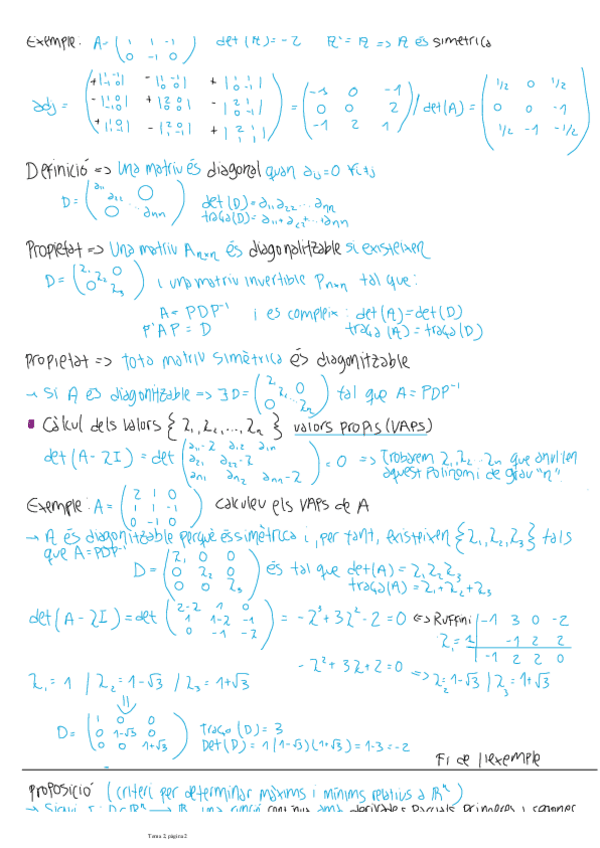 Exemple: A = ( 2 1 0 / 1 1 -1 / 0 -1 0 ) det(A) = -2 Aᵗ = A => A és simètrica
adj = = ( -1 0 -1 / 0 0 2 / -1 2 1 ) / det(A) = ( 1/2 0 1/2 / 0 0 -1 / 1/2 -1 -1/2 )
Definició => Una matriu és diagonal quan aᵢⱼ=0 ∀i≠j
D = ( a₁₁ a₂₂ 0 / 0 ... aₙₙ ) det(D) = a₁₁ a₂₂ ... aₙₙ
traça(D) = a₁₁+a₂₂+...+aₙₙ
Propietat => Una matriu Aₙₓₙ és diagonalitzable si existeixen
D = ( 2₁ 2₂ 0 / 0 2₃ ) i una matriu invertible Pₙₓₙ tal que:
A = PDP⁻¹ i es compleix: det(A) = det(D)
P⁻¹AP = D traça(A) = traça(D)
Propietat => tota matriu simètrica és diagonitzable
→ Si A és diagonitzable => ∃D = ( 2₁ 2₂ 0 / 0 2ₙ ) tal que A = PDP⁻¹
Càlcul dels valors {2₁, 2₂, ..., 2ₙ} valors propis (VAPS)
det(A - 2I) = det ( a₁₁-2 a₁₂ a₁ₙ / a₂₁ a₂₂-2 / aₙ₁ aₙ₂ aₙₙ-2 ) = 0 => Trobarem 2₁, 2₂ ... 2ₙ que anul·len
aquest polinomi de grau "n".
Exemple: A = ( 2 1 0 / 1 1 -1 / 0 -1 0 ) calculeu els VAPS de A
→ A és diagonitzable perquè és simètrica i, per tant, existeixen {2₁, 2₂, 2₃} tals
que A = PDP⁻¹
D = ( 2₁ 0 0 / 0 2₂ 0 / 0 0 2₃ ) és tal que det(A) = 2₁ 2₂ 2₃
traça(A) = 2₁ + 2₂ + 2₃
det(A - 2I) = det ( 2-2 1 0 / 1 1-2 -1 / 0 -1 -2 ) = -2³ + 32² - 2 = 0 <=> Ruffini | -1 3 0 -2
2₁ = 1 | -1 2 2
-1 2 2 0
-2² + 32 + 2 = 0 => 2₂ = 1-√3 / 2₃ = 1+√3
2₁ = 1 / 2₂ = 1-√3 / 2₃ = 1+√3
D = ( 1 0 0 / 0 1-√3 0 / 0 0 1+√3 ) traça(D) = 3
Det(D) = 1(1-√3)(1+√3) = 1-3 = -2
Fi de l'exemple
Proposició (criteri per determinar màxims i mínims relatius a ℝⁿ)
→ Sigui f: D⊂ℝⁿ → ℝ una funció contínua amb derivades parcials primeres i segones
Tema 2, página 2